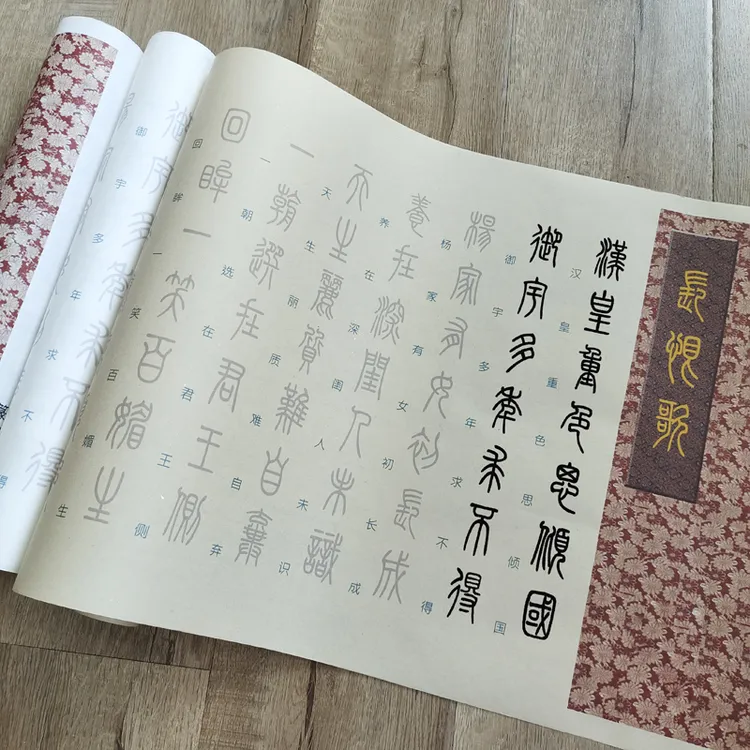 長恨歌
漢皇重色思傾國
汉皇重色思倾国
御宇多年求不得
御宇多年求不得
楊家有女初長成
杨家有女初长成
養在深閨人未識
养在深闺人未识
天生麗質難自棄
天生丽质难自弃
一朝選在君王側
一朝选在君王侧
回眸一笑百媚生
回眸一笑百媚生
御宇多年求不得
御宇多年求不得